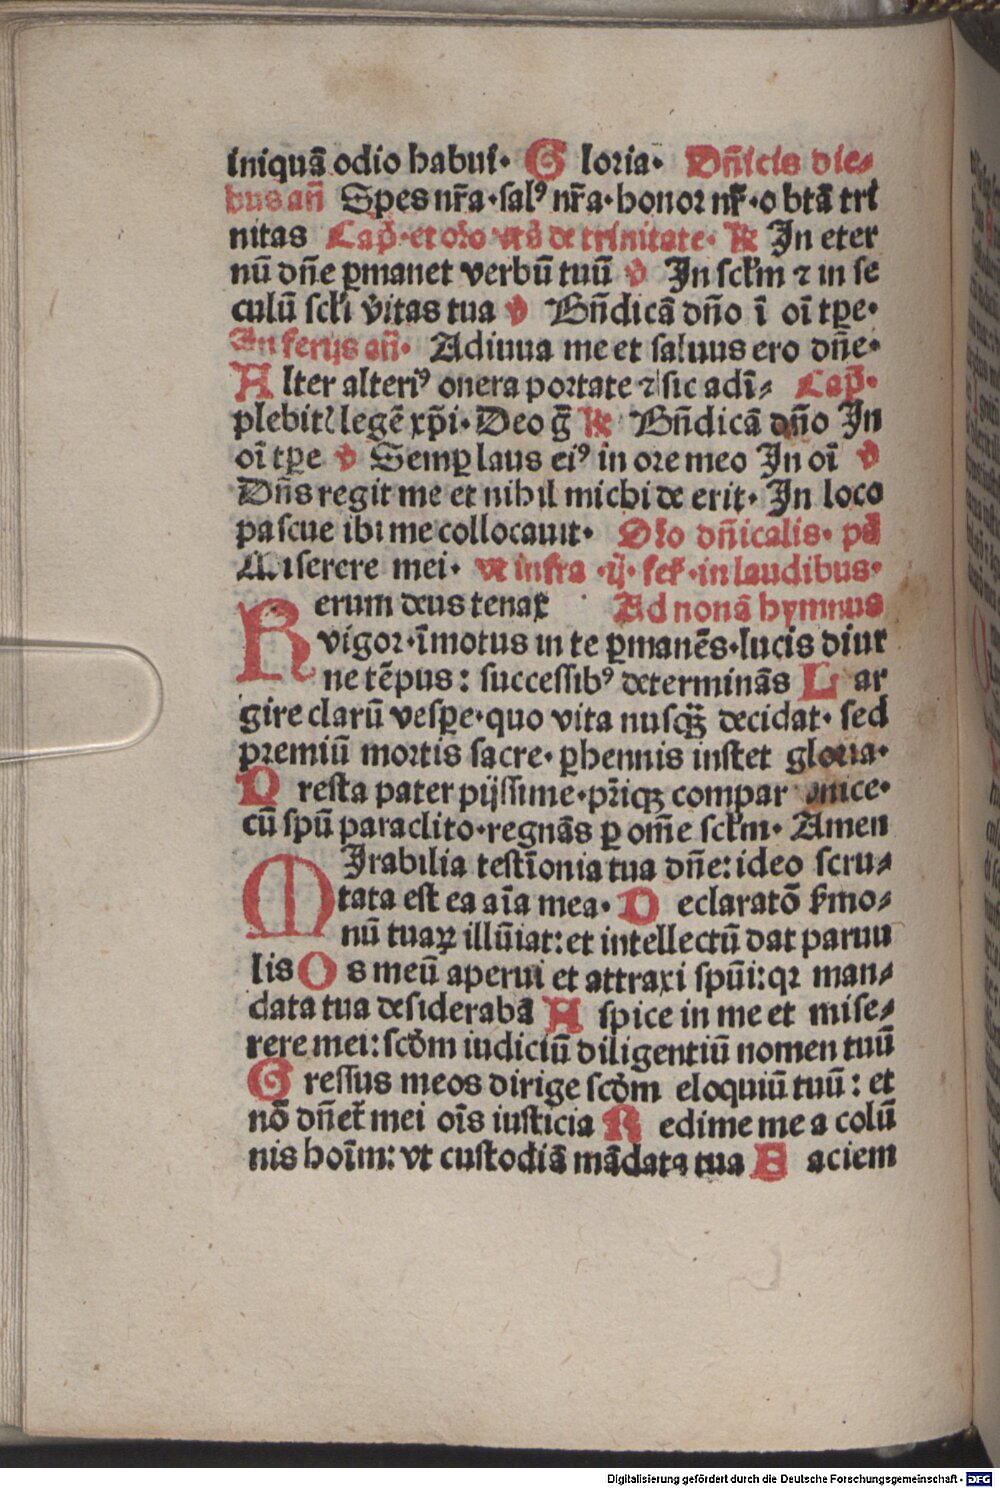 iniquā odio habui· Gloria· Dñicis die⸗
bus añ Spes nr̄a·salꝰ nr̄a·honor nr̄·o btā tri
nitas Cap̄·et or̄o vt s̄ de trinitate· ꝶ In eter
nū dñe ꝑmanet verbū tuū ꝟ In sclm̄ ⁊ in se
culū scli̅ v̄itas tua ꝟ Bñdicā dño ī oī tꝑe·
In ferijs añ· Adiuua me et saluus ero dñe·
Alter alteriꝰ onera portate ⁊ sic adī⸗ Cap̄·
plebitꝭ legē xp̄i·Deo g̅ ꝶ Bñdicā dño In
oī tꝑe ꝟ Semꝑ laus eiꝰ in ore meo In oī ꝟ
Dñs regit me et nihil michi de erit· In loco
pascue ibi me collocauit· Or̄o dñicalis· ps̄
Miserere mei· vt infra ·ij· fer̄·in laudibus·
Rerum deus tenax Ad nonā hymnus
vigor·īmotus in te ꝑmanēs·lucis diur
ne tēpus: successibꝰ determinās Lar
gire clarū vesꝑe·quo vita nusqȝ̄ decidat· sed
premiū mortis sacre· ꝑhennis instet gloria·
Presta pater pijssime·pr̄iqȝ compar vnice·
cū spū paraclito·regnās ꝑ om̄e sclm̄· Amen
MIrabilia testīonia tua dñe: ideo scru⸗
tata est ea aīa mea· Declaratō ẜmo⸗
nū tuaꝝ illūiat: et intellectū dat paruu
lis Os meū aperui et attraxi spūi: qꝛ man⸗
data tua desiderabā Aspice in me et mise⸗
rere mei: scd̄m iudiciū diligentiū nomen tuū
Gressus meos dirige scd̄m eloquiū tuū: et
nō dñet̄ mei oīs iusticia Redime me a colū
nis hoīm: vt custodiā mādata tua Faciem
Digitalisierung gefördert durch die Deutsche Forschungsgemeinschaft - DFG